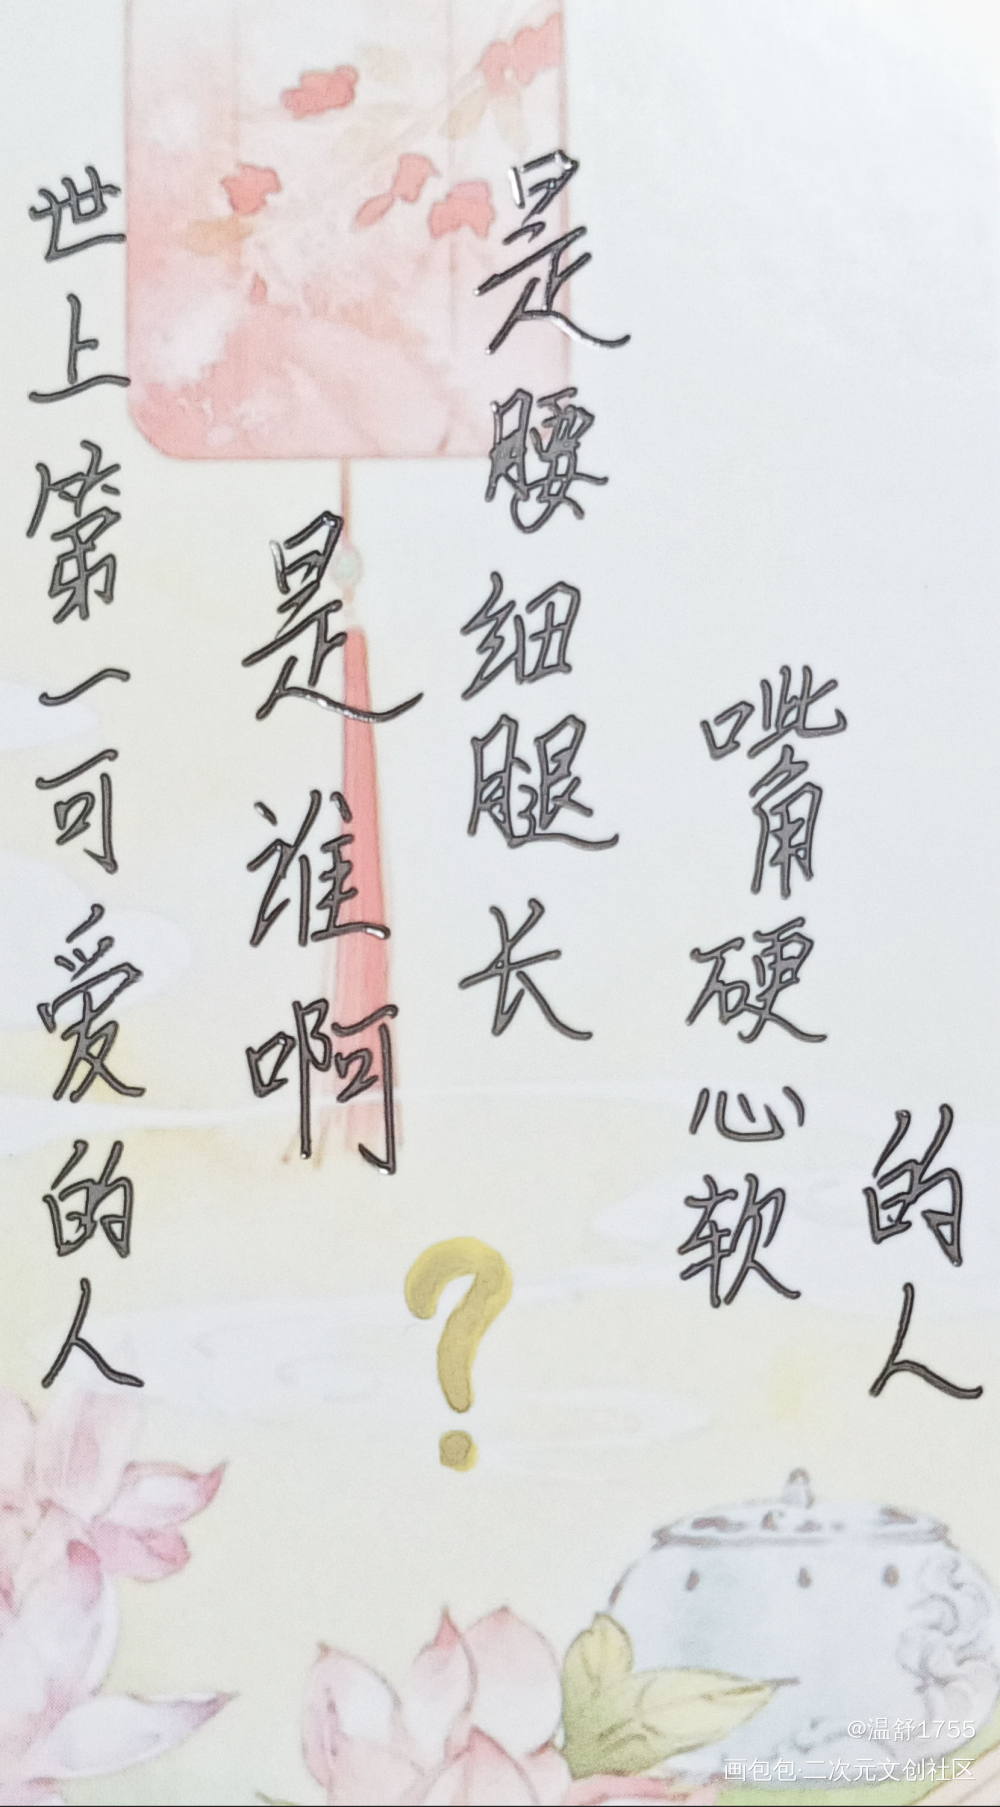 世上第一可爱的人
是谁啊
?
是腰细腿长
嘴角硬心软
的人
@温舒1755
画包包·二次元文创社区